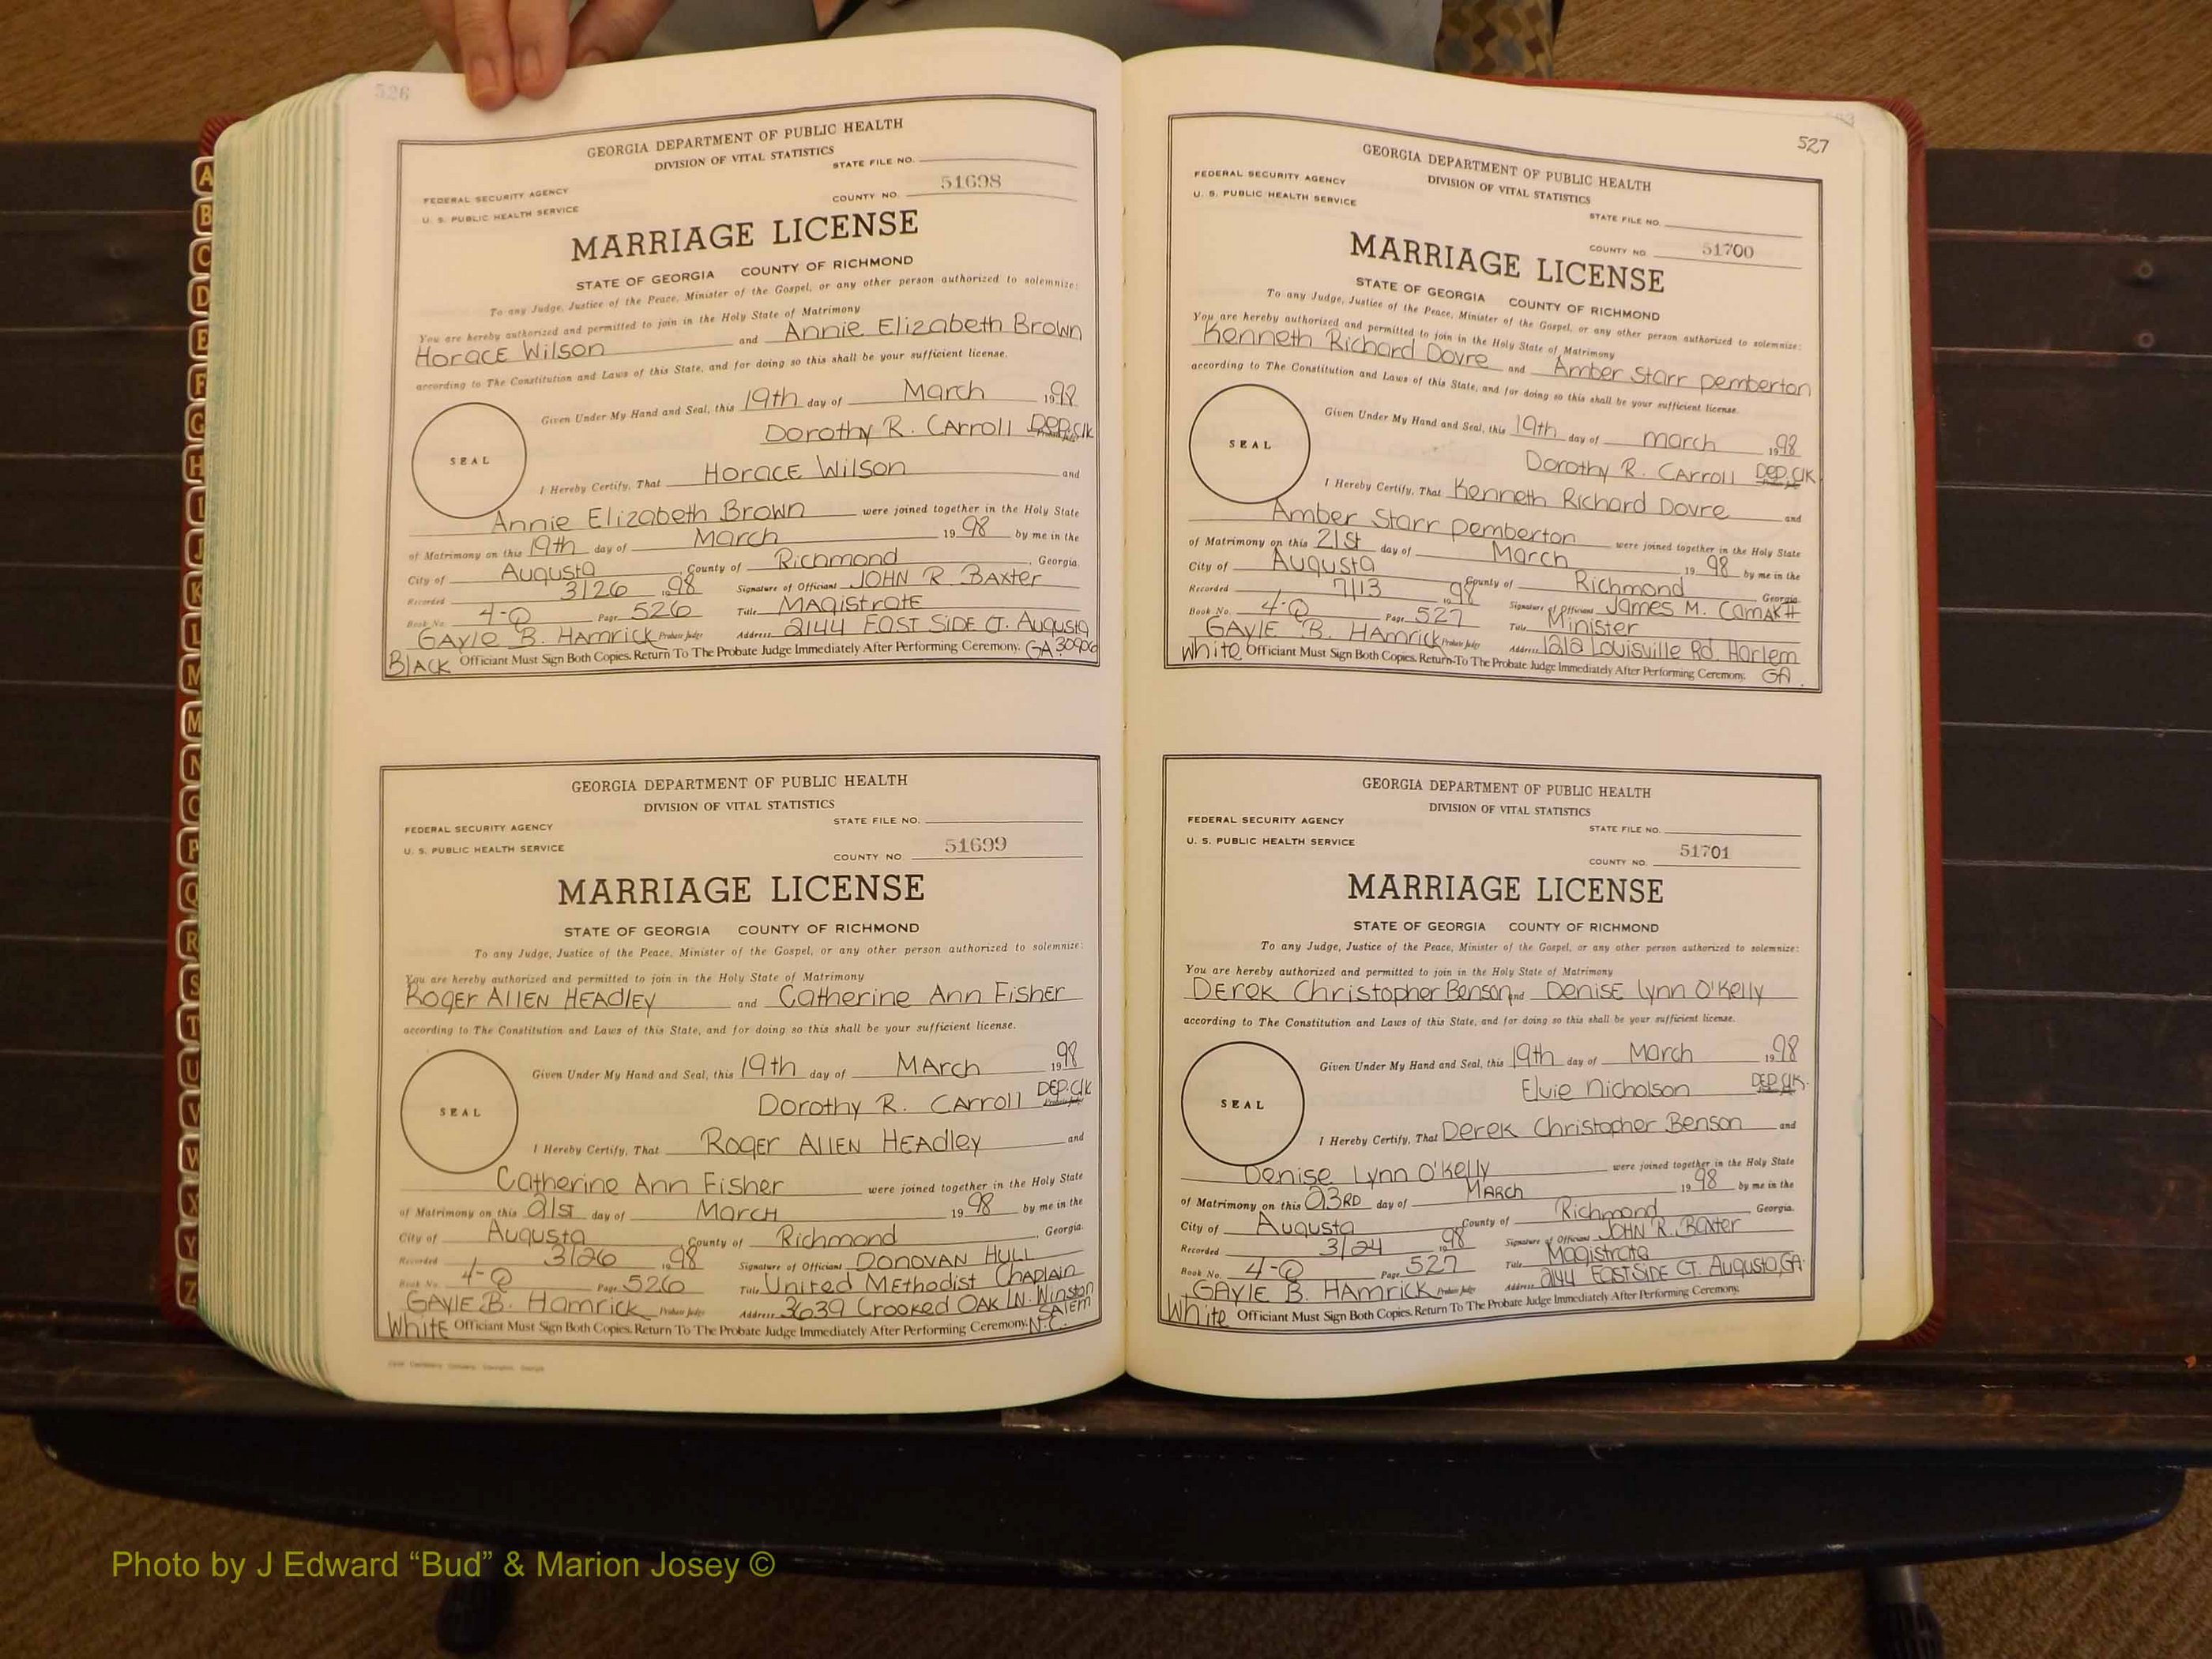 526
GEORGIA DEPARTMENT OF PUBLIC HEALTH
DIVISION OF VITAL STATISTICS
STATE FILE NO.
FEDERAL SECURITY AGENCY
U. S. PUBLIC HEALTH SERVICE
COUNTY NO. 51698
MARRIAGE LICENSE
STATE OF GEORGIA COUNTY OF RICHMOND
To any Judge, Justice of the Peace, Minister of the Gospel, or any other person authorized to solemnize:
You are hereby authorized and permitted to join in the Holy State of Matrimony
Horace Wilson and Annie Elizabeth Brown
according to The Constitution and Laws of this State, and for doing so this shall be your sufficient license.
Given Under My Hand and Seal, this 19th day of March 1998
Dorothy R. Carroll Dep. Clk
SEAL
I Hereby Certify, That Horace Wilson and
Annie Elizabeth Brown were joined together in the Holy State
of Matrimony on this 19th day of March 1998 by me in the
City of Augusta, County of Richmond, Georgia.
Recorded 3/26 1998 Signature of Officiant John R. Baxter
Book No. 4-Q Page 526 Title Magistrate
Gayle B. Hamrick Probate Judge Address 2144 East Side Ct. Augusta
Black Officiant Must Sign Both Copies. Return To The Probate Judge Immediately After Performing Ceremony. GA 30906
GEORGIA DEPARTMENT OF PUBLIC HEALTH
DIVISION OF VITAL STATISTICS
STATE FILE NO.
FEDERAL SECURITY AGENCY
U. S. PUBLIC HEALTH SERVICE
COUNTY NO. 51699
MARRIAGE LICENSE
STATE OF GEORGIA COUNTY OF RICHMOND
To any Judge, Justice of the Peace, Minister of the Gospel, or any other person authorized to solemnize:
You are hereby authorized and permitted to join in the Holy State of Matrimony
Roger Allen Headley and Catherine Ann Fisher
according to The Constitution and Laws of this State, and for doing so this shall be your sufficient license.
Given Under My Hand and Seal, this 19th day of March 1998
Dorothy R. Carroll Dep. Clk
SEAL
I Hereby Certify, That Roger Allen Headley and
Catherine Ann Fisher were joined together in the Holy State
of Matrimony on this 21st day of March 1998 by me in the
City of Augusta, County of Richmond, Georgia.
Recorded 3/26 1998 Signature of Officiant Donovan Hull
Book No. 4-Q Page 526 Title United Methodist Chaplain
Gayle B. Hamrick Probate Judge Address 3639 Crooked Oak Ln. Winston Salem
White Officiant Must Sign Both Copies. Return To The Probate Judge Immediately After Performing Ceremony. N.C.
527
GEORGIA DEPARTMENT OF PUBLIC HEALTH
DIVISION OF VITAL STATISTICS
FEDERAL SECURITY AGENCY
U. S. PUBLIC HEALTH SERVICE
STATE FILE NO.
COUNTY NO. 51700
MARRIAGE LICENSE
STATE OF GEORGIA COUNTY OF RICHMOND
To any Judge, Justice of the Peace, Minister of the Gospel, or any other person authorized to solemnize:
You are hereby authorized and permitted to join in the Holy State of Matrimony
Kenneth Richard Dovre and Amber Starr Pemberton
according to The Constitution and Laws of this State, and for doing so this shall be your sufficient license.
Given Under My Hand and Seal, this 19th day of March 1998
Dorothy R. Carroll Dep. Clk
SEAL
I Hereby Certify, That Kenneth Richard Dovre and
Amber Starr Pemberton were joined together in the Holy State
of Matrimony on this 21st day of March 1998 by me in the
City of Augusta County of Richmond Georgia.
Recorded 7/13 1998 Signature of Officiant James M. Camak II
Book No. 4-Q Page 527 Title Minister
Gayle B. Hamrick Probate Judge Address 1212 Louisville Rd. Harlem
White Officiant Must Sign Both Copies. Return To The Probate Judge Immediately After Performing Ceremony. GA.
GEORGIA DEPARTMENT OF PUBLIC HEALTH
DIVISION OF VITAL STATISTICS
FEDERAL SECURITY AGENCY
STATE FILE NO.
U. S. PUBLIC HEALTH SERVICE
COUNTY NO. 51701
MARRIAGE LICENSE
STATE OF GEORGIA COUNTY OF RICHMOND
To any Judge, Justice of the Peace, Minister of the Gospel, or any other person authorized to solemnize:
You are hereby authorized and permitted to join in the Holy State of Matrimony
Derek Christopher Benson and Denise Lynn O'Kelly
according to The Constitution and Laws of this State, and for doing so this shall be your sufficient license.
Given Under My Hand and Seal, this 19th day of March 1998
Elvie Nicholson Dep. Clk.
SEAL
I Hereby Certify, That Derek Christopher Benson and
Denise Lynn O'Kelly were joined together in the Holy State
of Matrimony on this 23rd day of March 1998 by me in the
City of Augusta County of Richmond Georgia.
Recorded 3/24 1998 Signature of Officiant John R. Baxter
Book No. 4-Q Page 527 Title Magistrate
Gayle B. Hamrick Probate Judge Address 2144 East Side Ct. Augusta, GA.
White Officiant Must Sign Both Copies. Return To The Probate Judge Immediately After Performing Ceremony.
A
B
C
D
E
F
G
H
I
J
K
L
M
M
N
O
P
Q
R
S
T
U
V
W
X
Y
Z
Photo by J Edward “Bud” & Marion Josey ©